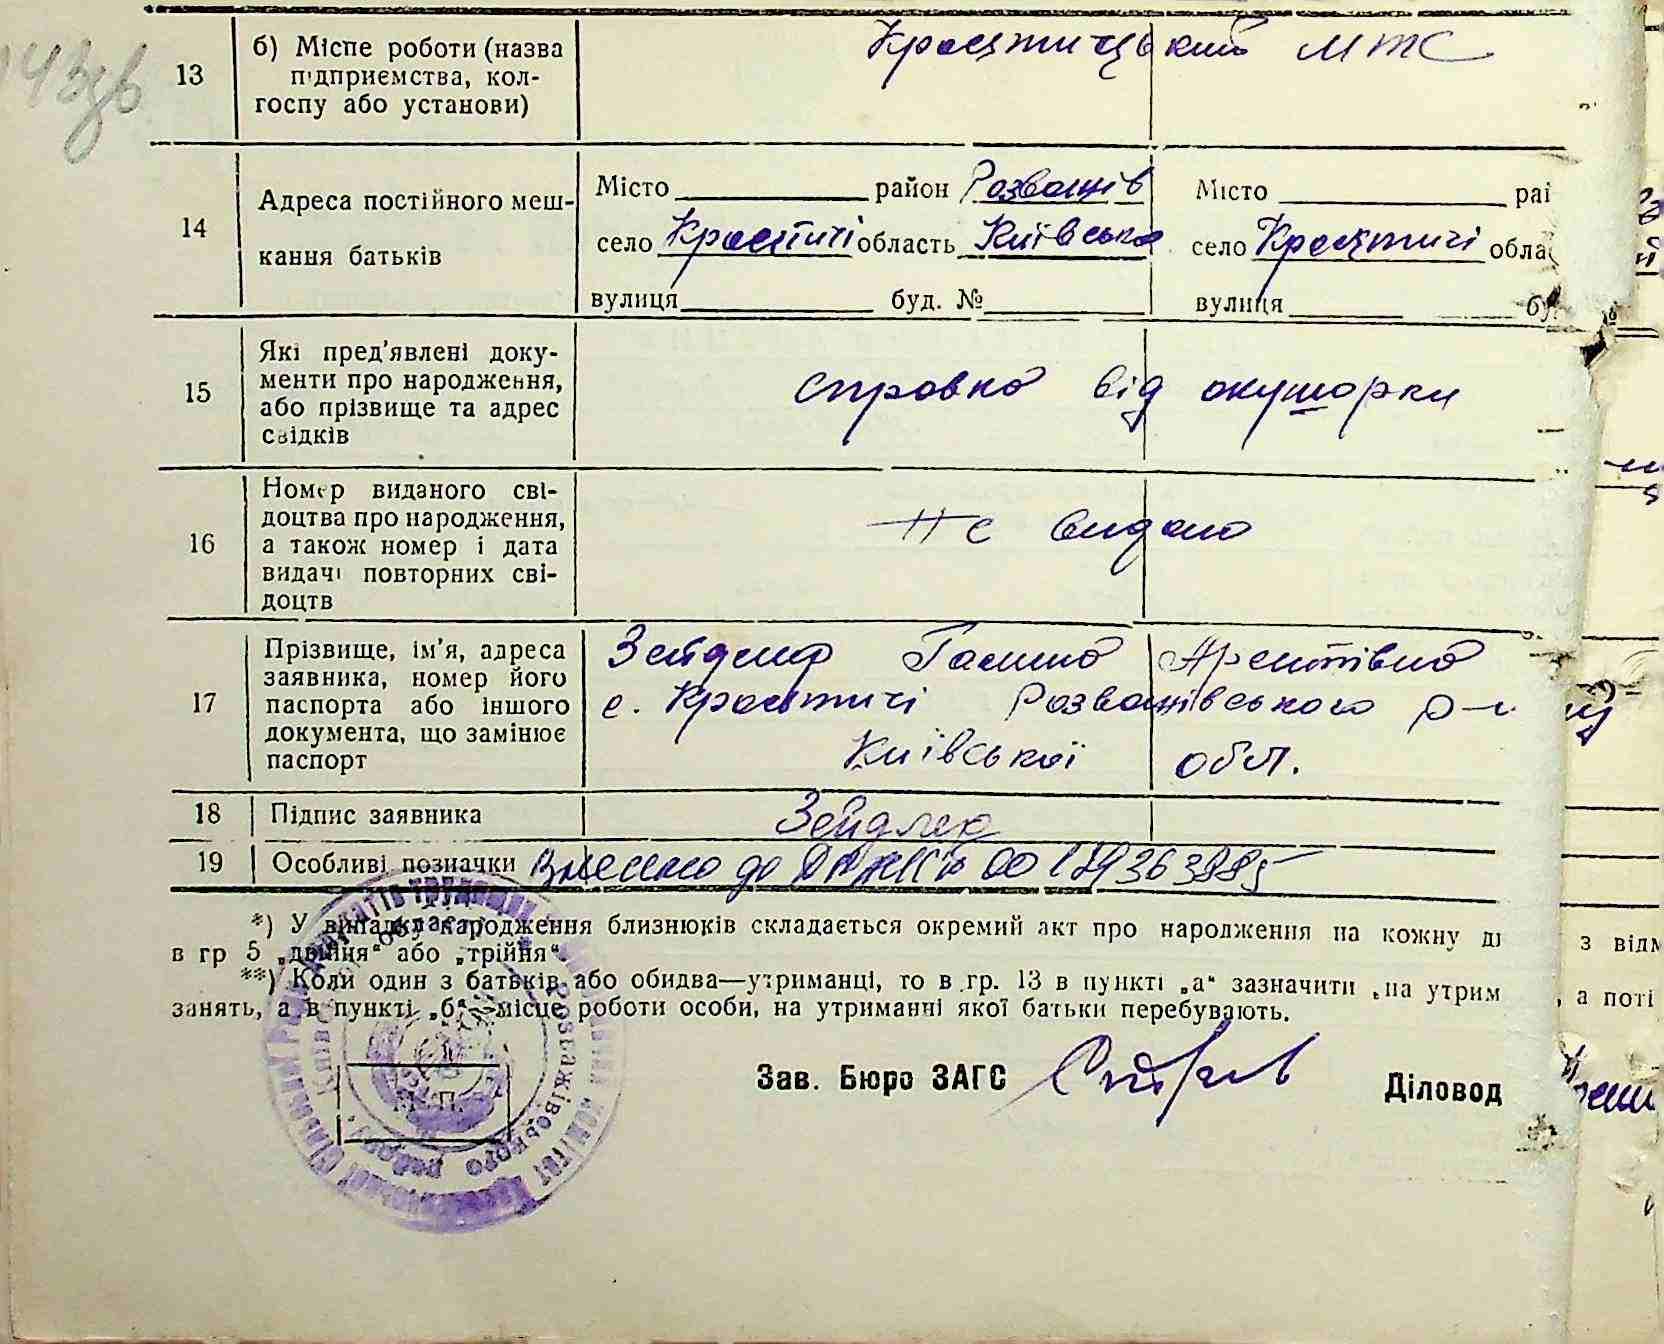 13
б) Місце роботи (назва
підприємства, кол-
госпу або установи)
МТС
14
Адреса постійного меш-
кання батьків
Місто район Розважів
село Красятичі область Київська
вулиця буд. №
Місто рай
село Красятичі обла
вулиця бу
15
Які пред'явлені доку-
менти про народження,
або прізвище та адрес
свідків
справка від акушорки
16
Номер виданого сві-
доцтва про народження,
а також номер і дата
видачі повторних сві-
доцтв
Не видано
17
Прізвище, ім'я, адреса
заявника, номер його
паспорта або іншого
документа, що замінює
паспорт
Зейдлер Галина
с. Красятичі Розважівського р-н
Київської обл.
18
Підпис заявника
Зейдлер
19
Особливі позначки Внесено до
*) У випадку народження близнюків складається окремий акт про народження на кожну ді
в гр 5 „двійня“ або „трійня“
**) Коли один з батьків або обидва—утриманці, то в гр. 13 в пункті „а“ зазначити „на утрим
занять, а в пункті „б“—місце роботи особи, на утриманні якої батьки перебувають.
Зав. Бюро ЗАГС
Діловод
М. П.
з відм
, а поті